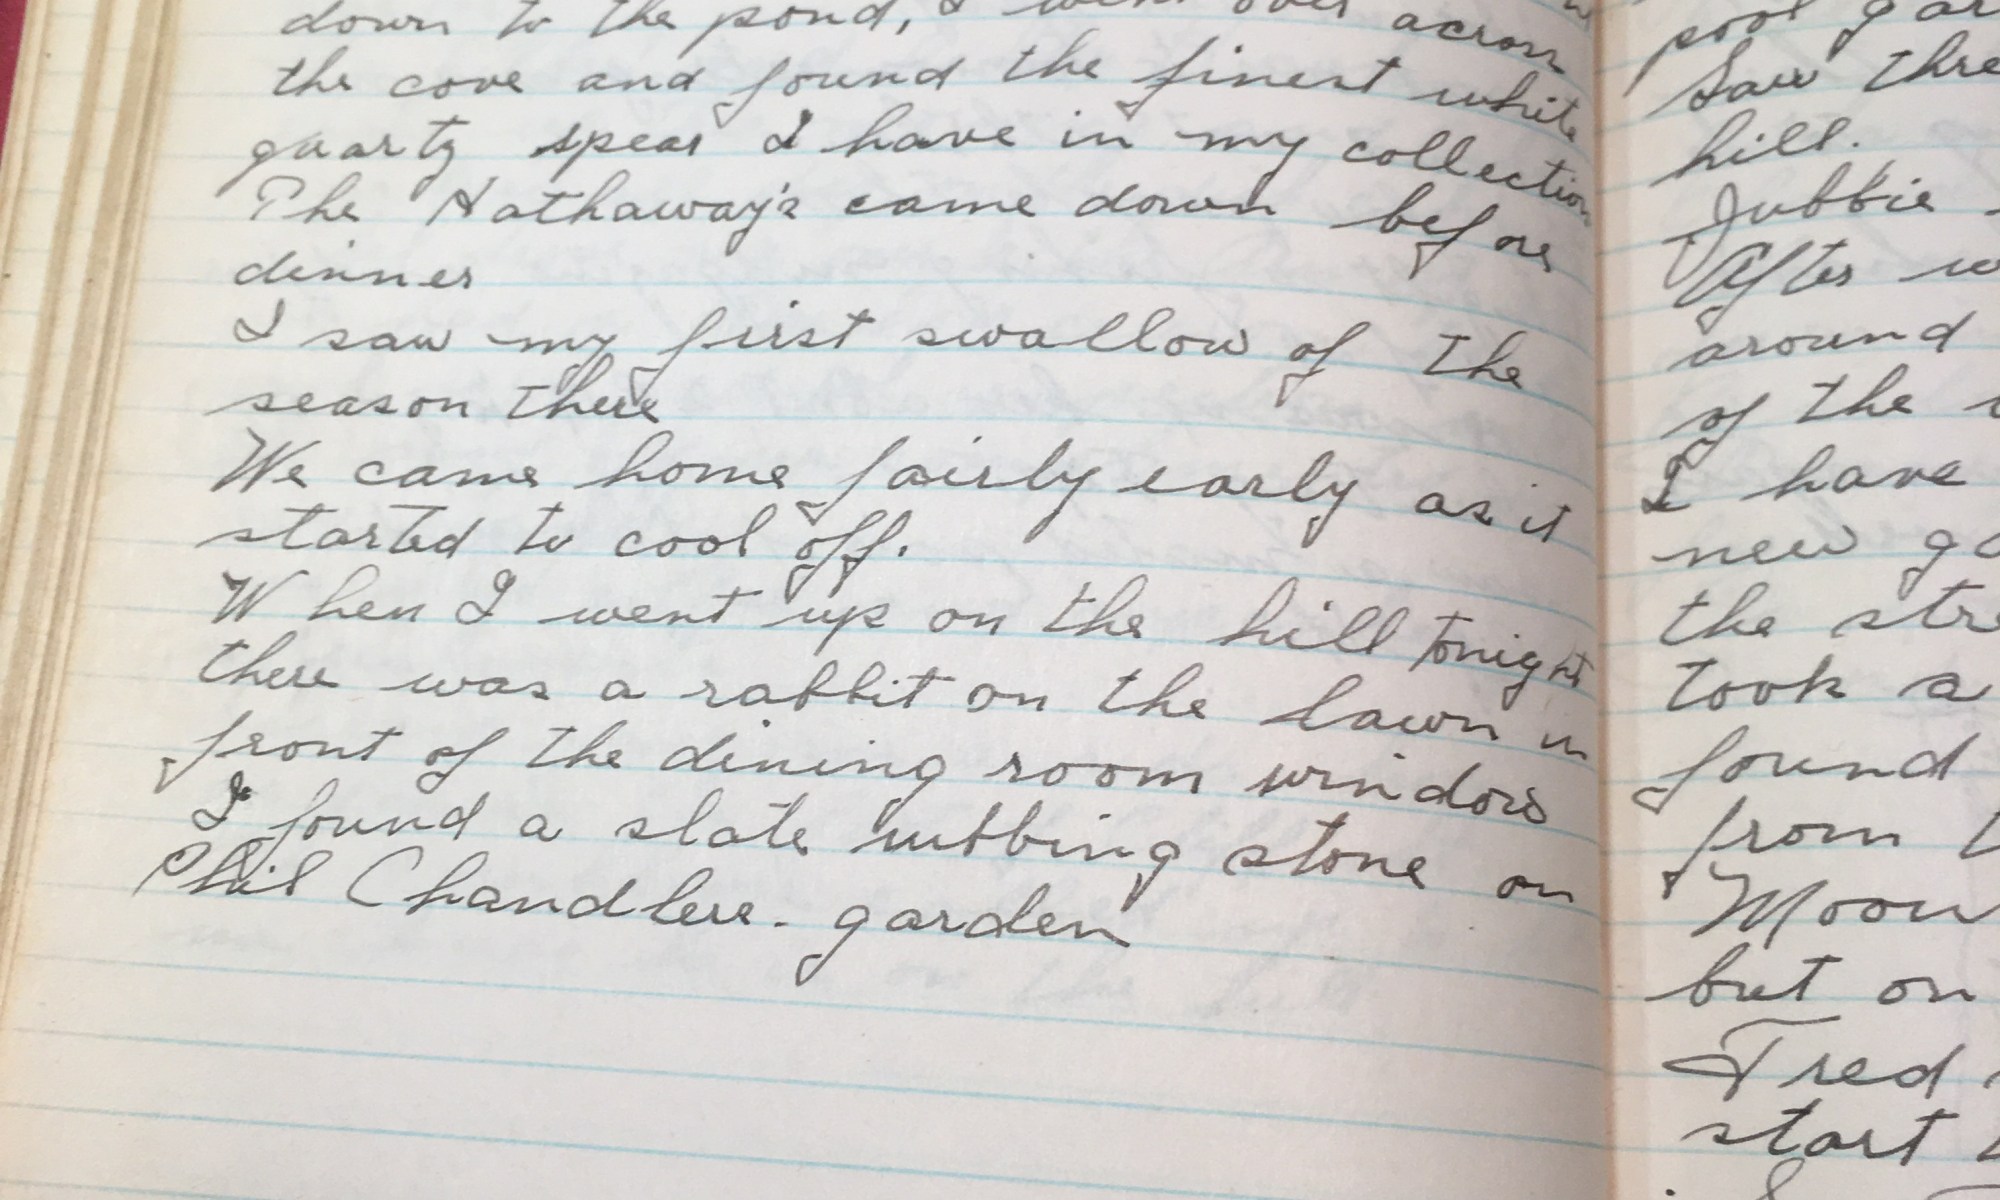 down to the pond, I went over across
the cove and found the finest white
quartz spear I have in my collection
The Hathaway's came down before
dinner
I saw my first swallow of the
season there
We came home fairly early as it
started to cool off.
When I went up on the hill tonight
there was a rabbit on the lawn in
front of the dining room window
I found a slate rubbing stone on
Phil Chandlers. garden
pool
Saw three
hill.
Jubbie
After
around
of the
I have
new
the
took a
found
from
Moon
but on
Fred
start